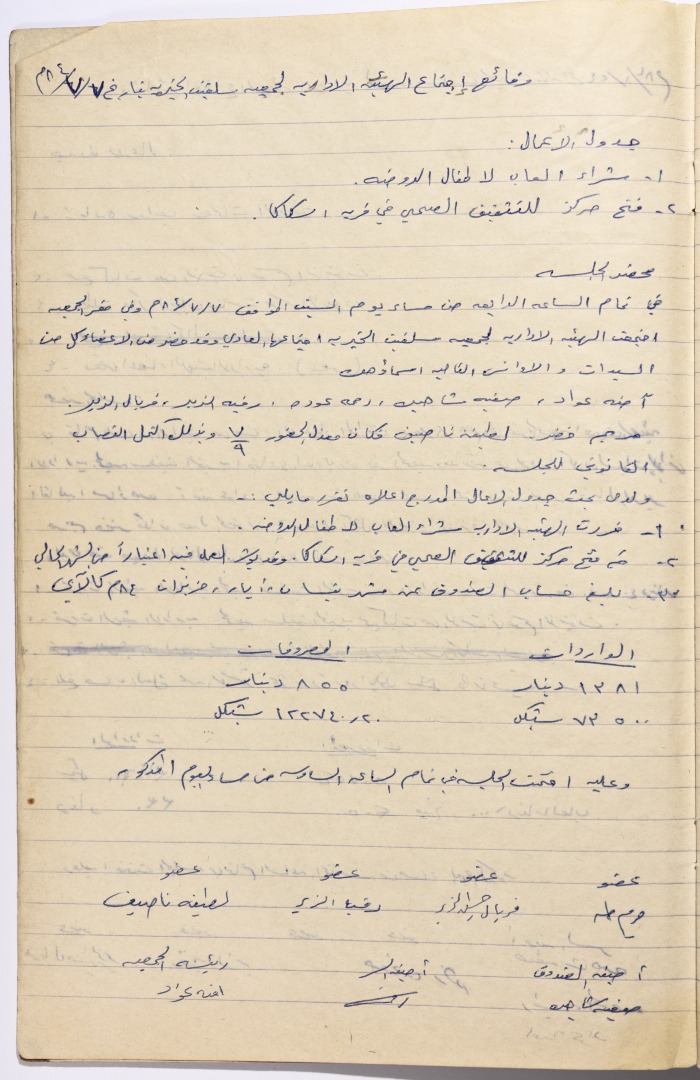 وقائع إجتماع الهيئة الادارية لجمعية سلفيت الخيرية بتاريخ ٧/٧/٨٤م
جدول الأعمال :
١- شراء العاب لاطفال الروضه .
٢- فتح مركز للتثقيف الصحي في قريه اسكاكا .
محضر الجلسه
في تمام الساعه الرابعه من مساء يوم السبت الموافق ٧/٧/٨٤م وفي مقر الجمعيه
اجتمعت الهيئه الاداريه لجمعيه سلفيت الخيريه اجتماعها العادي وقد حضر من الاعضاء كل من
السيدات و الاوانس التاليه اسماؤهن
آمنه عواد ، صفيه شاهين ، رحمه عوده ، رقيه الزير ، فريال الزير
مريم خضر لطيفه ناصيف فكان معدل الحضور ٧/٩ وبذلك اكتمل النصاب
القانوني للجلسه .
ولدى بحث جدول الاعمال المدرج اعلاه تقرر مايلي :-
١- قررت الهيئه الاداريه شراء العاب لاطفال الروضه .
٢- تم فتح مركز للتثقيف الصحي في قريه اسكاكا . وقد بوشر العمل فيه اعتباراً من الشهر الحالي
٣- بلغ حساب الصندوق عن شهر نيسان ، أيار ، حزيران ٨٤م كالآتي
الواردات المصروفات
١٣٨١ دينار ٨٥٥ دينار
٧٣٥٠٠ شيكل ١٢٢٧٤٠,٢٠ شيكل
وعليه اختتمت الجلسه في تمام الساعه السادسه من مساء اليوم المذكور
عضو عضو عضو عضو
مريم فريال الزير رقيه الزير لطيفه ناصيف
أمينه الصندوق أمينه السر رئيسة الجمعيه
صفيه شاهين آمنه عواد